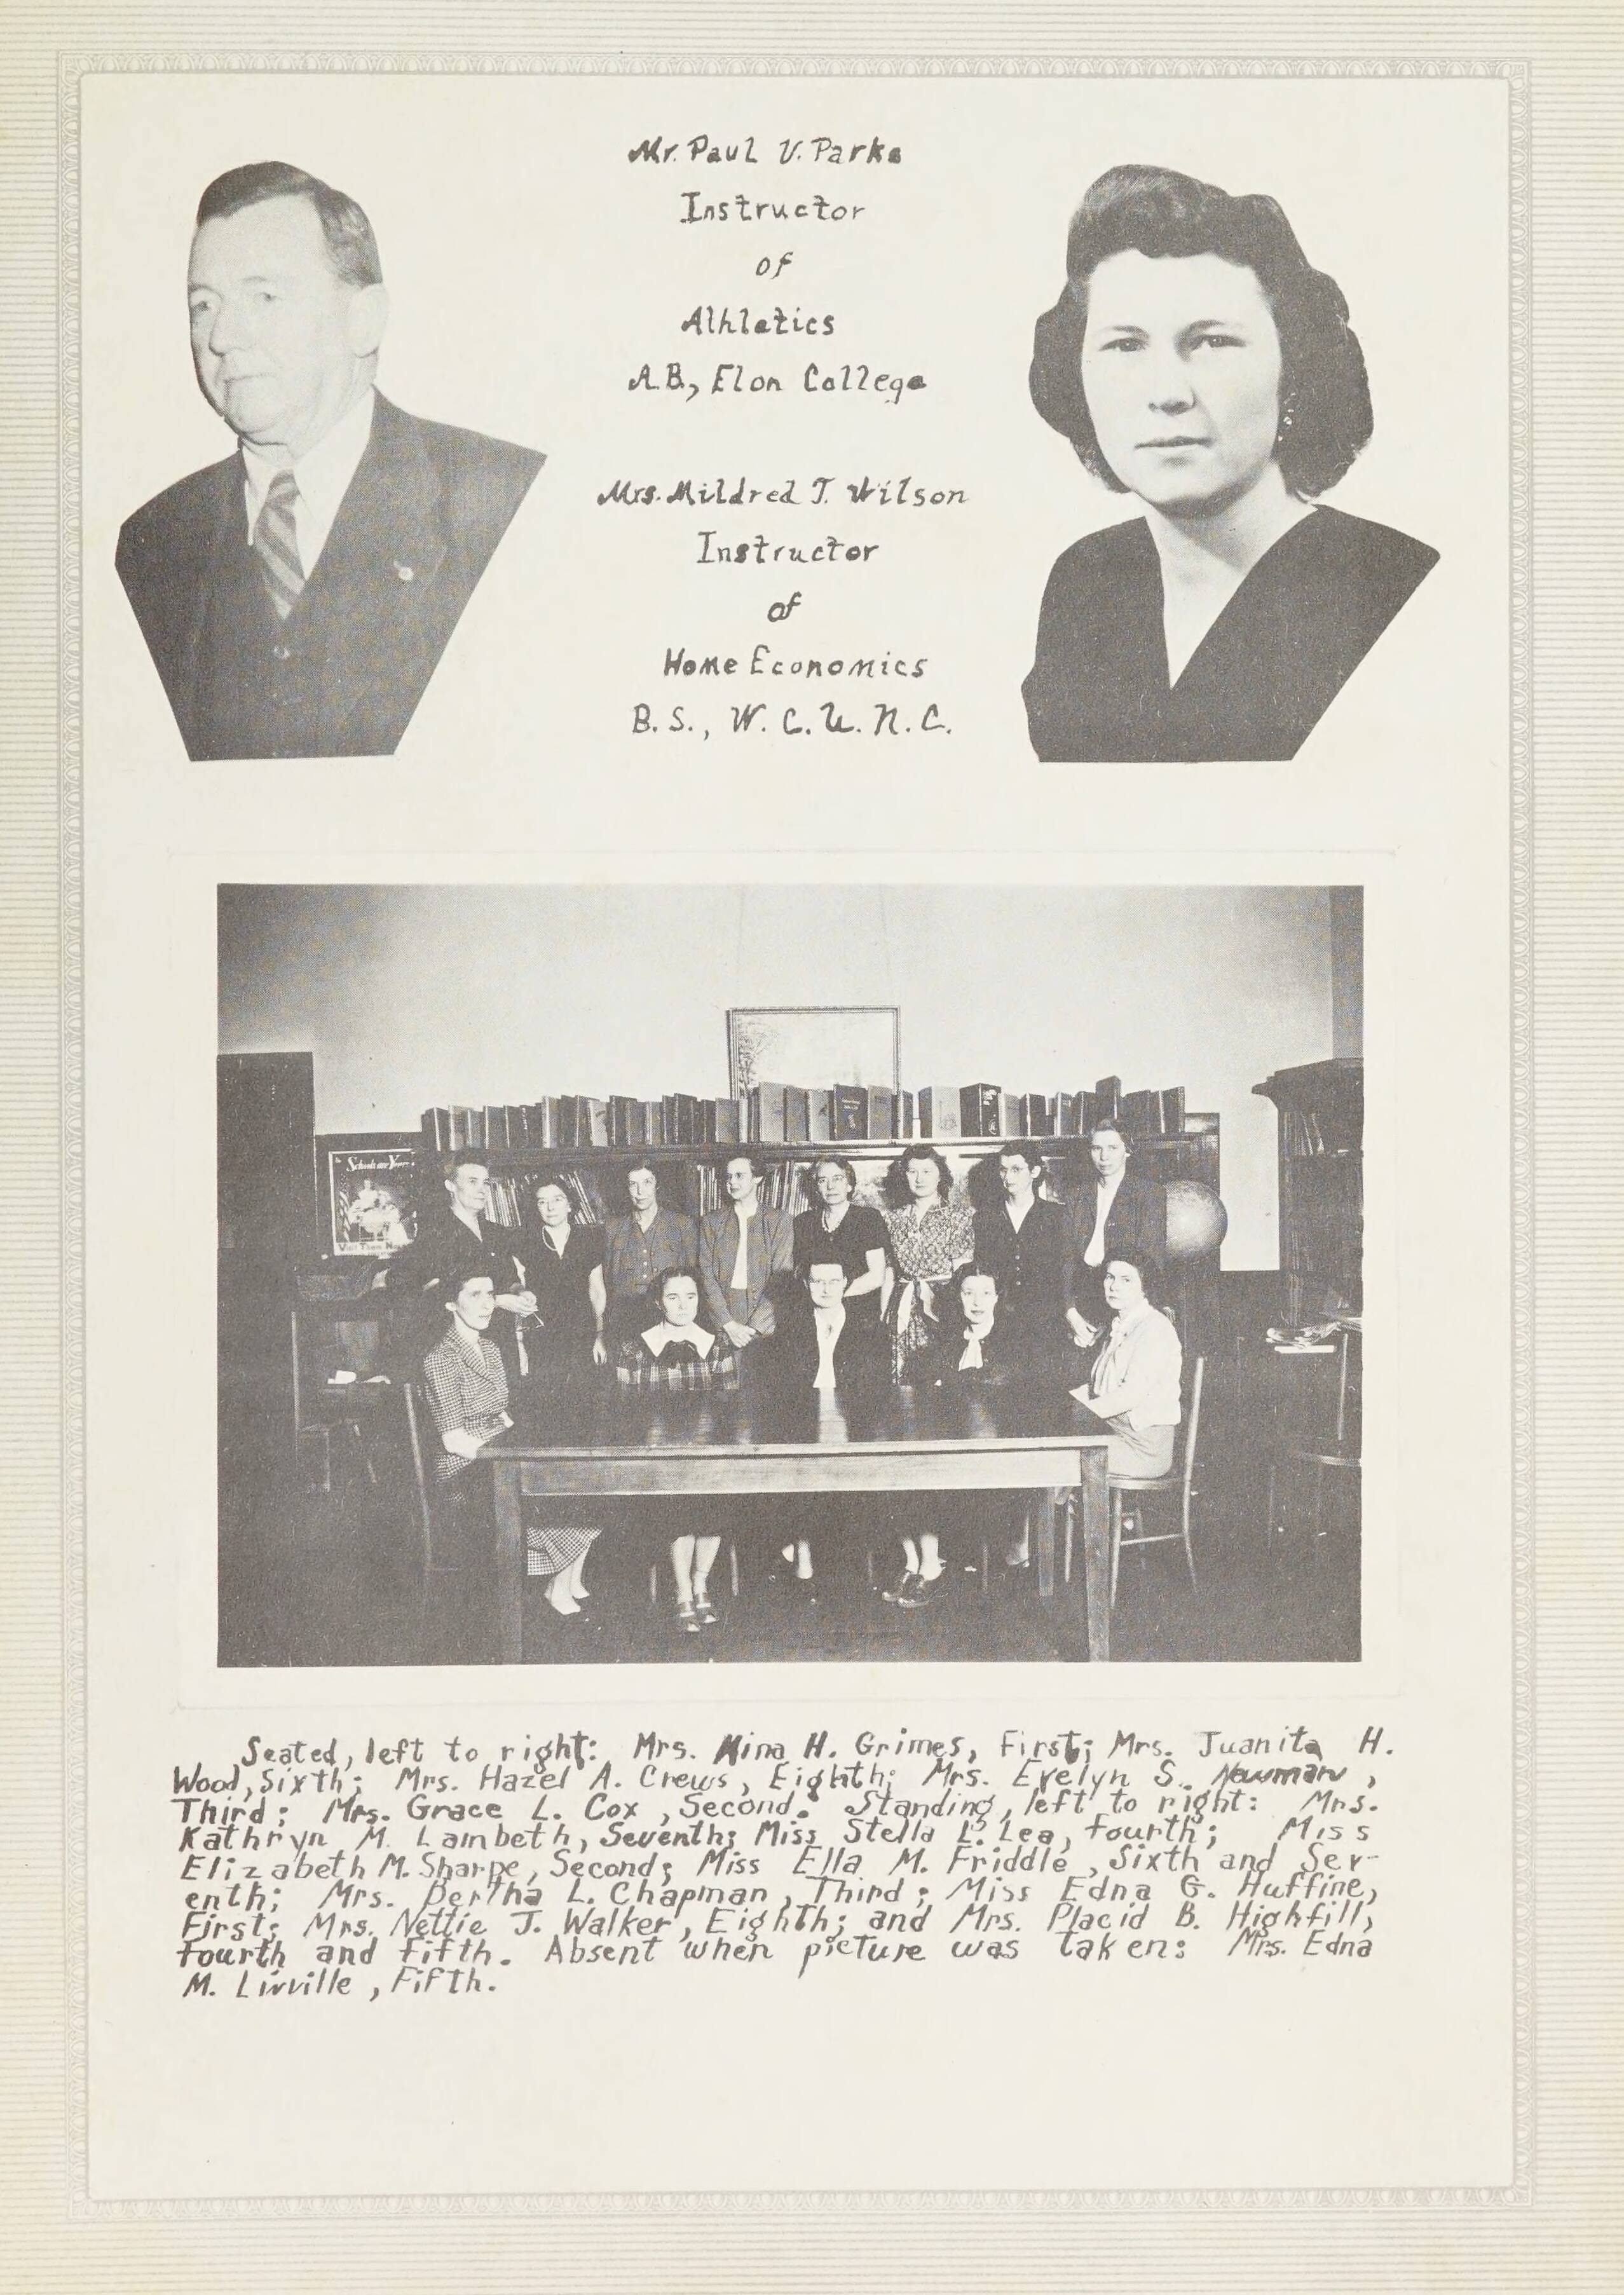 Mr. Paul V. Parks
Instructor
of
Athletics
A.B., Elon College
Mrs. Mildred T. Wilson
Instructor
of
Home Economics
B. S., W. C. U. N. C.
Schools are Yours
Visit Them Now
Seated, left to right: Mrs. Nina H. Grimes, First; Mrs. Juanita H.
Wood, Sixth; Mrs. Hazel A. Crews, Eighth; Mrs. Evelyn S. Newman,
Third; Mrs. Grace L. Cox, Second. Standing, left to right: Mrs.
Kathryn M. Lambeth, Seventh; Miss Stella L. Lea, Fourth; Miss
Elizabeth M. Sharpe, Second; Miss Ella M. Friddle, Sixth and Sev-
enth; Mrs. Bertha L. Chapman, Third; Miss Edna G. Huffine,
First; Mrs. Nettie J. Walker, Eighth; and Mrs. Placid B. Highfill,
Fourth and Fifth. Absent when picture was taken: Mrs. Edna
M. Linville, Fifth.